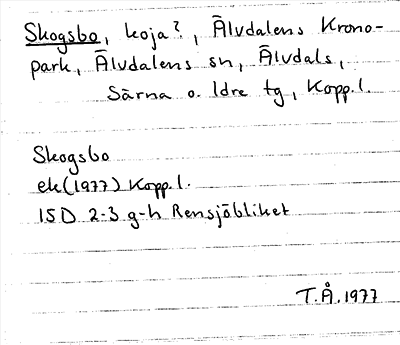 Skogsbo, koja?, Älvdalens Krono-
park, Älvdalens sn, Älvdals,
Särna o. Idre tg, Kopp.l.
Skogsbo
ek(1977) Kopp.l.
15D 2-3 g-h Rensjöbliket
T.Å.1977